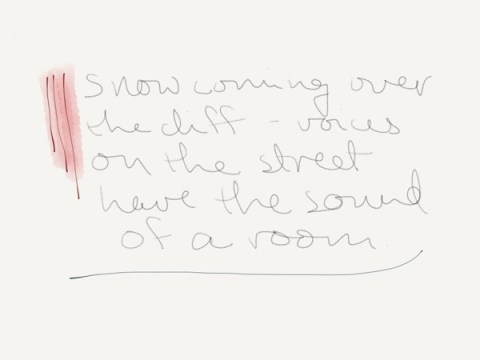 snow coming over
the cliff - voices
on the street
have the sound
of a room